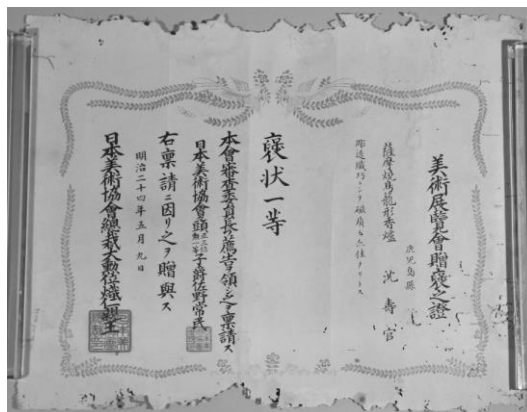 美術展覽會贈褒之證
鹿児島縣
薩摩焼鳥籠形香爐 沈壽官
彫造纖巧ニシテ磁質モ亦佳ナリトス
褒状一等
本會審査委員長ノ薦告ヲ領シ之ヲ禀請ス
日本美術協會會頭正三位勲一等子爵佐野常民
右禀請ニ因リ之ヲ贈與ス
明治二十四年五月九日
日本美術協會總裁大勲位熾仁親王